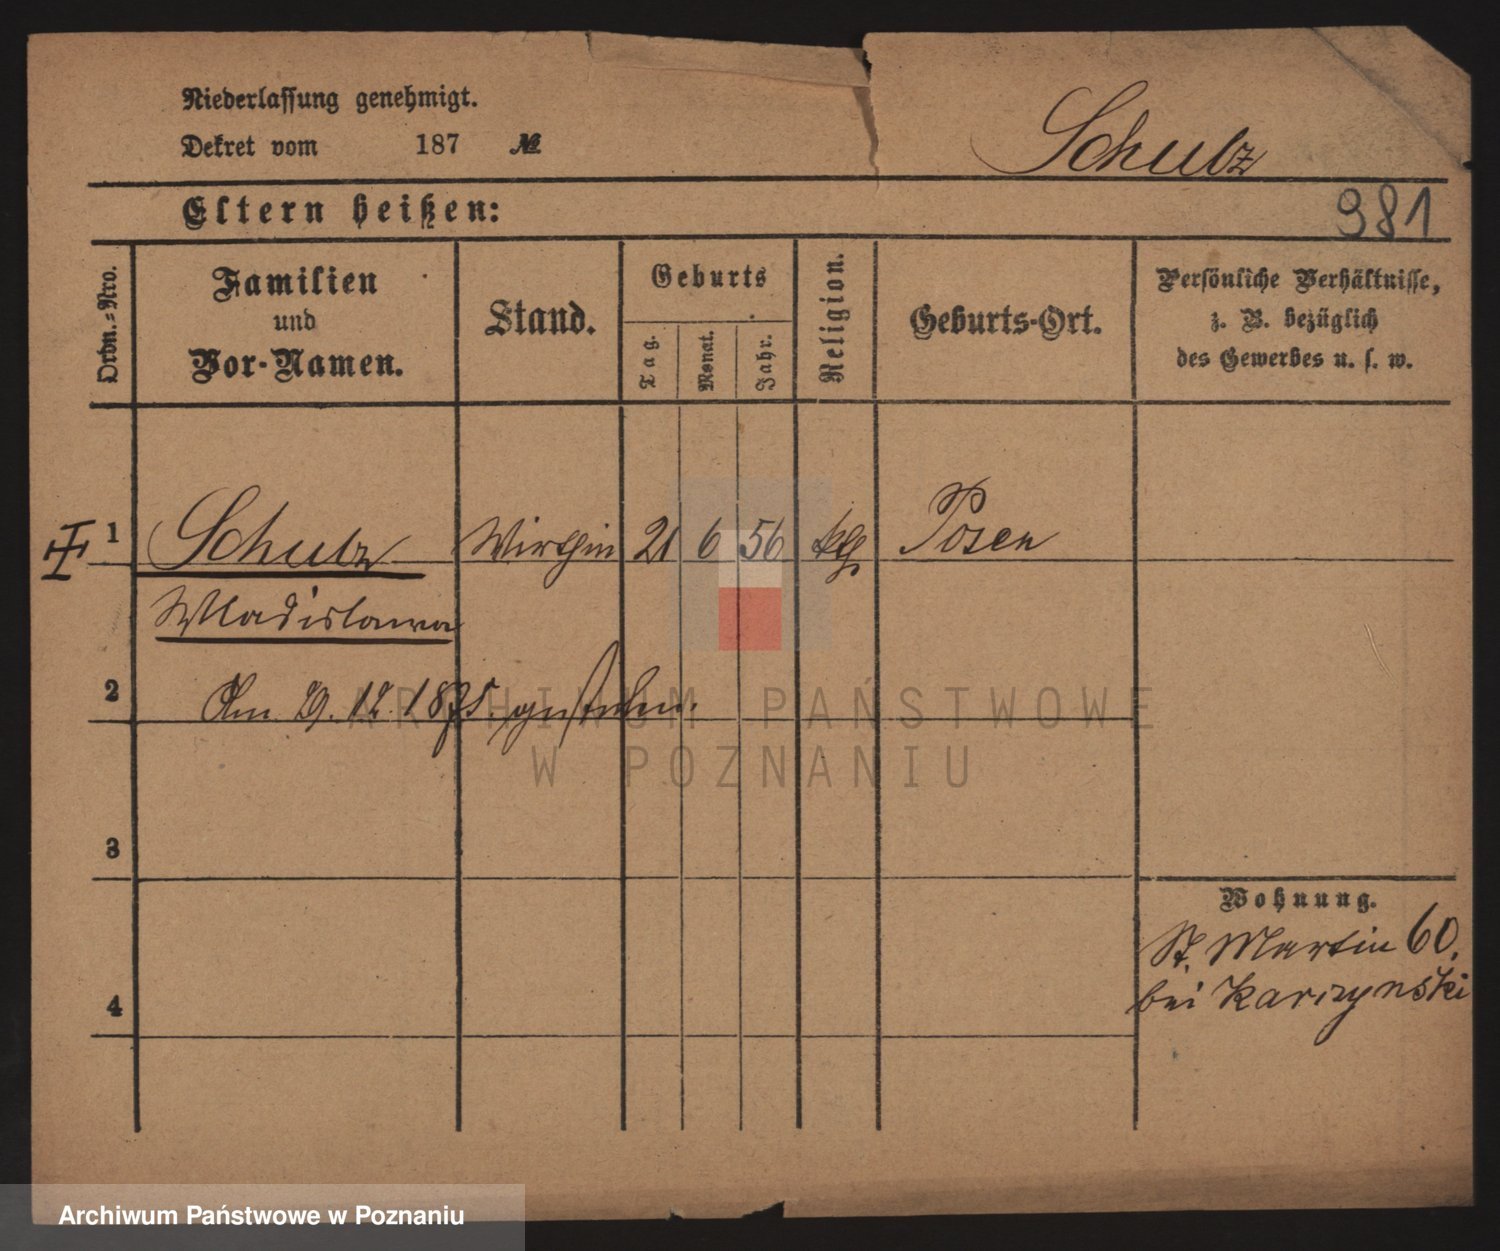 Niederlassung genehmigt.
Dekret vom 187 №
Schulz
Eltern heißen:
981
Ordn.-Nro.
Familien und Vor-Namen.
Stand.
Geburts
Tag.
Monat.
Jahr.
Religion.
Geburts-Ort.
Persönliche Verhältnisse,
z. B. bezüglich
des Gewerbes u. s. w.
1 Schulz Wirthin 21 6 56 kth Posen
Wladislawa
2 Am 29. 12. 1875. gestorben.
ARCHIWUM PAŃSTWOWE
W POZNANIU
3
Wohnung.
St. Martin 60.
bei Karczynski
4
Archiwum Państwowe w Poznaniu